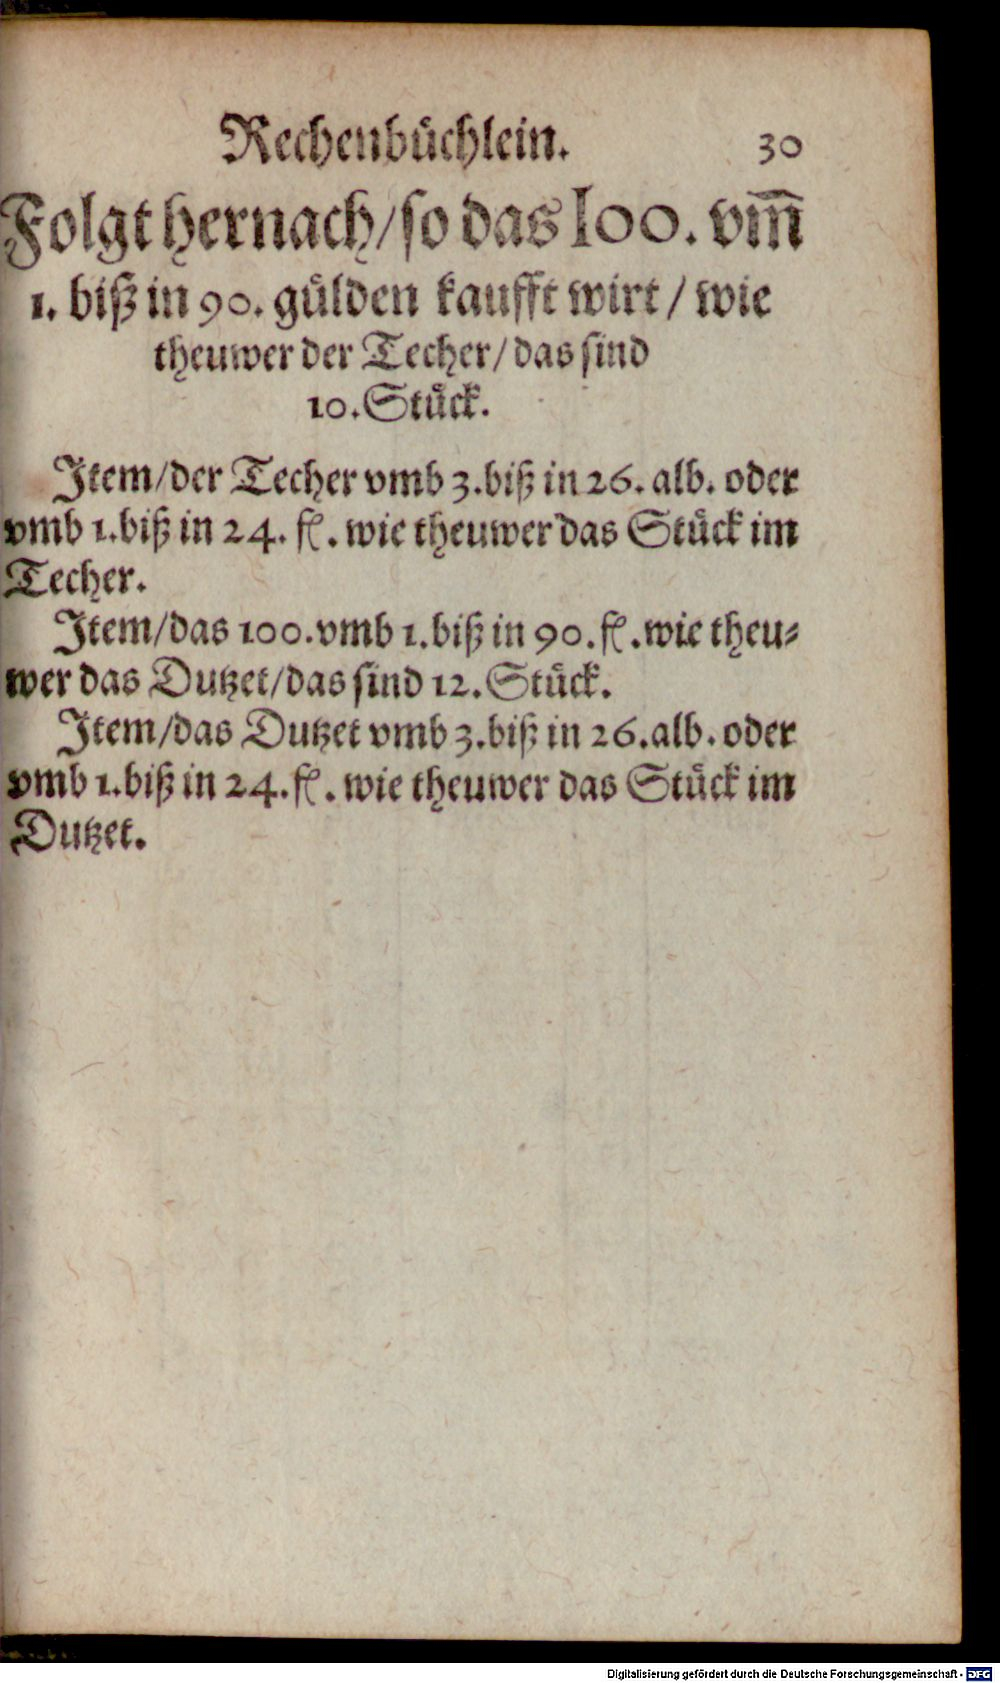 Rechenbüchlein. 30
Folgt hernach/so das 100. vm̄
1. biß in 90. gülden kaufft wirt / wie
theuwer der Techer/das sind
10. Stück.
Item/der Techer vmb 3. biß in 26. alb. oder
vmb 1. biß in 24. fl. wie theuwer das Stück im
Techer.
Item/das 100. vmb 1. biß in 90. fl. wie theu⸗
wer das Dutzet/das sind 12. Stück.
Item/das Dutzet vmb 3. biß in 26. alb. oder
vmb 1. biß in 24. fl. wie theuwer das Stück im
Dutzet.
Digitalisierung gefördert durch die Deutsche Forschungsgemeinschaft - DFG